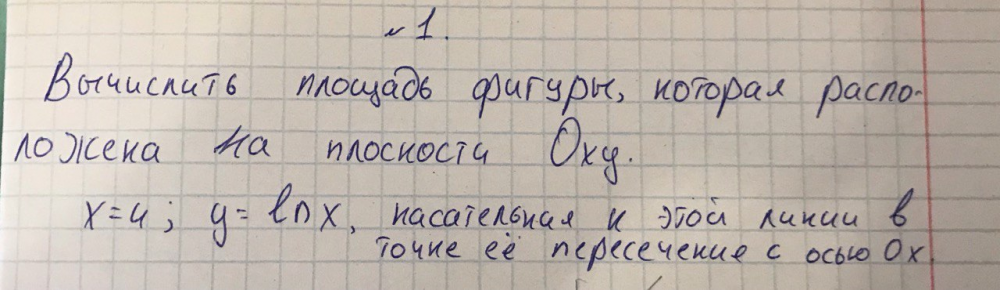 №1.
Вычислить площадь фигуры, которая распо-
ложена на плоскости Oxy.
x=4; y= ln x, касательная к этой линии в
точке её пересечение с осью Ox.